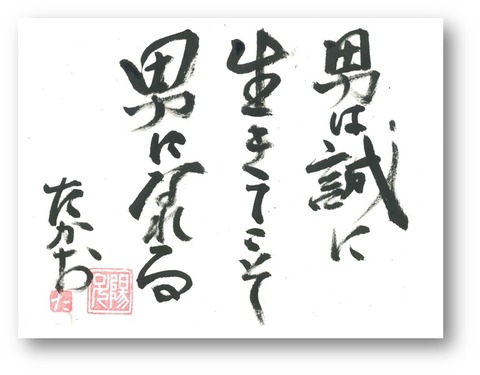 男は誠に
生きてこそ
男になれる
たかお
陽
た